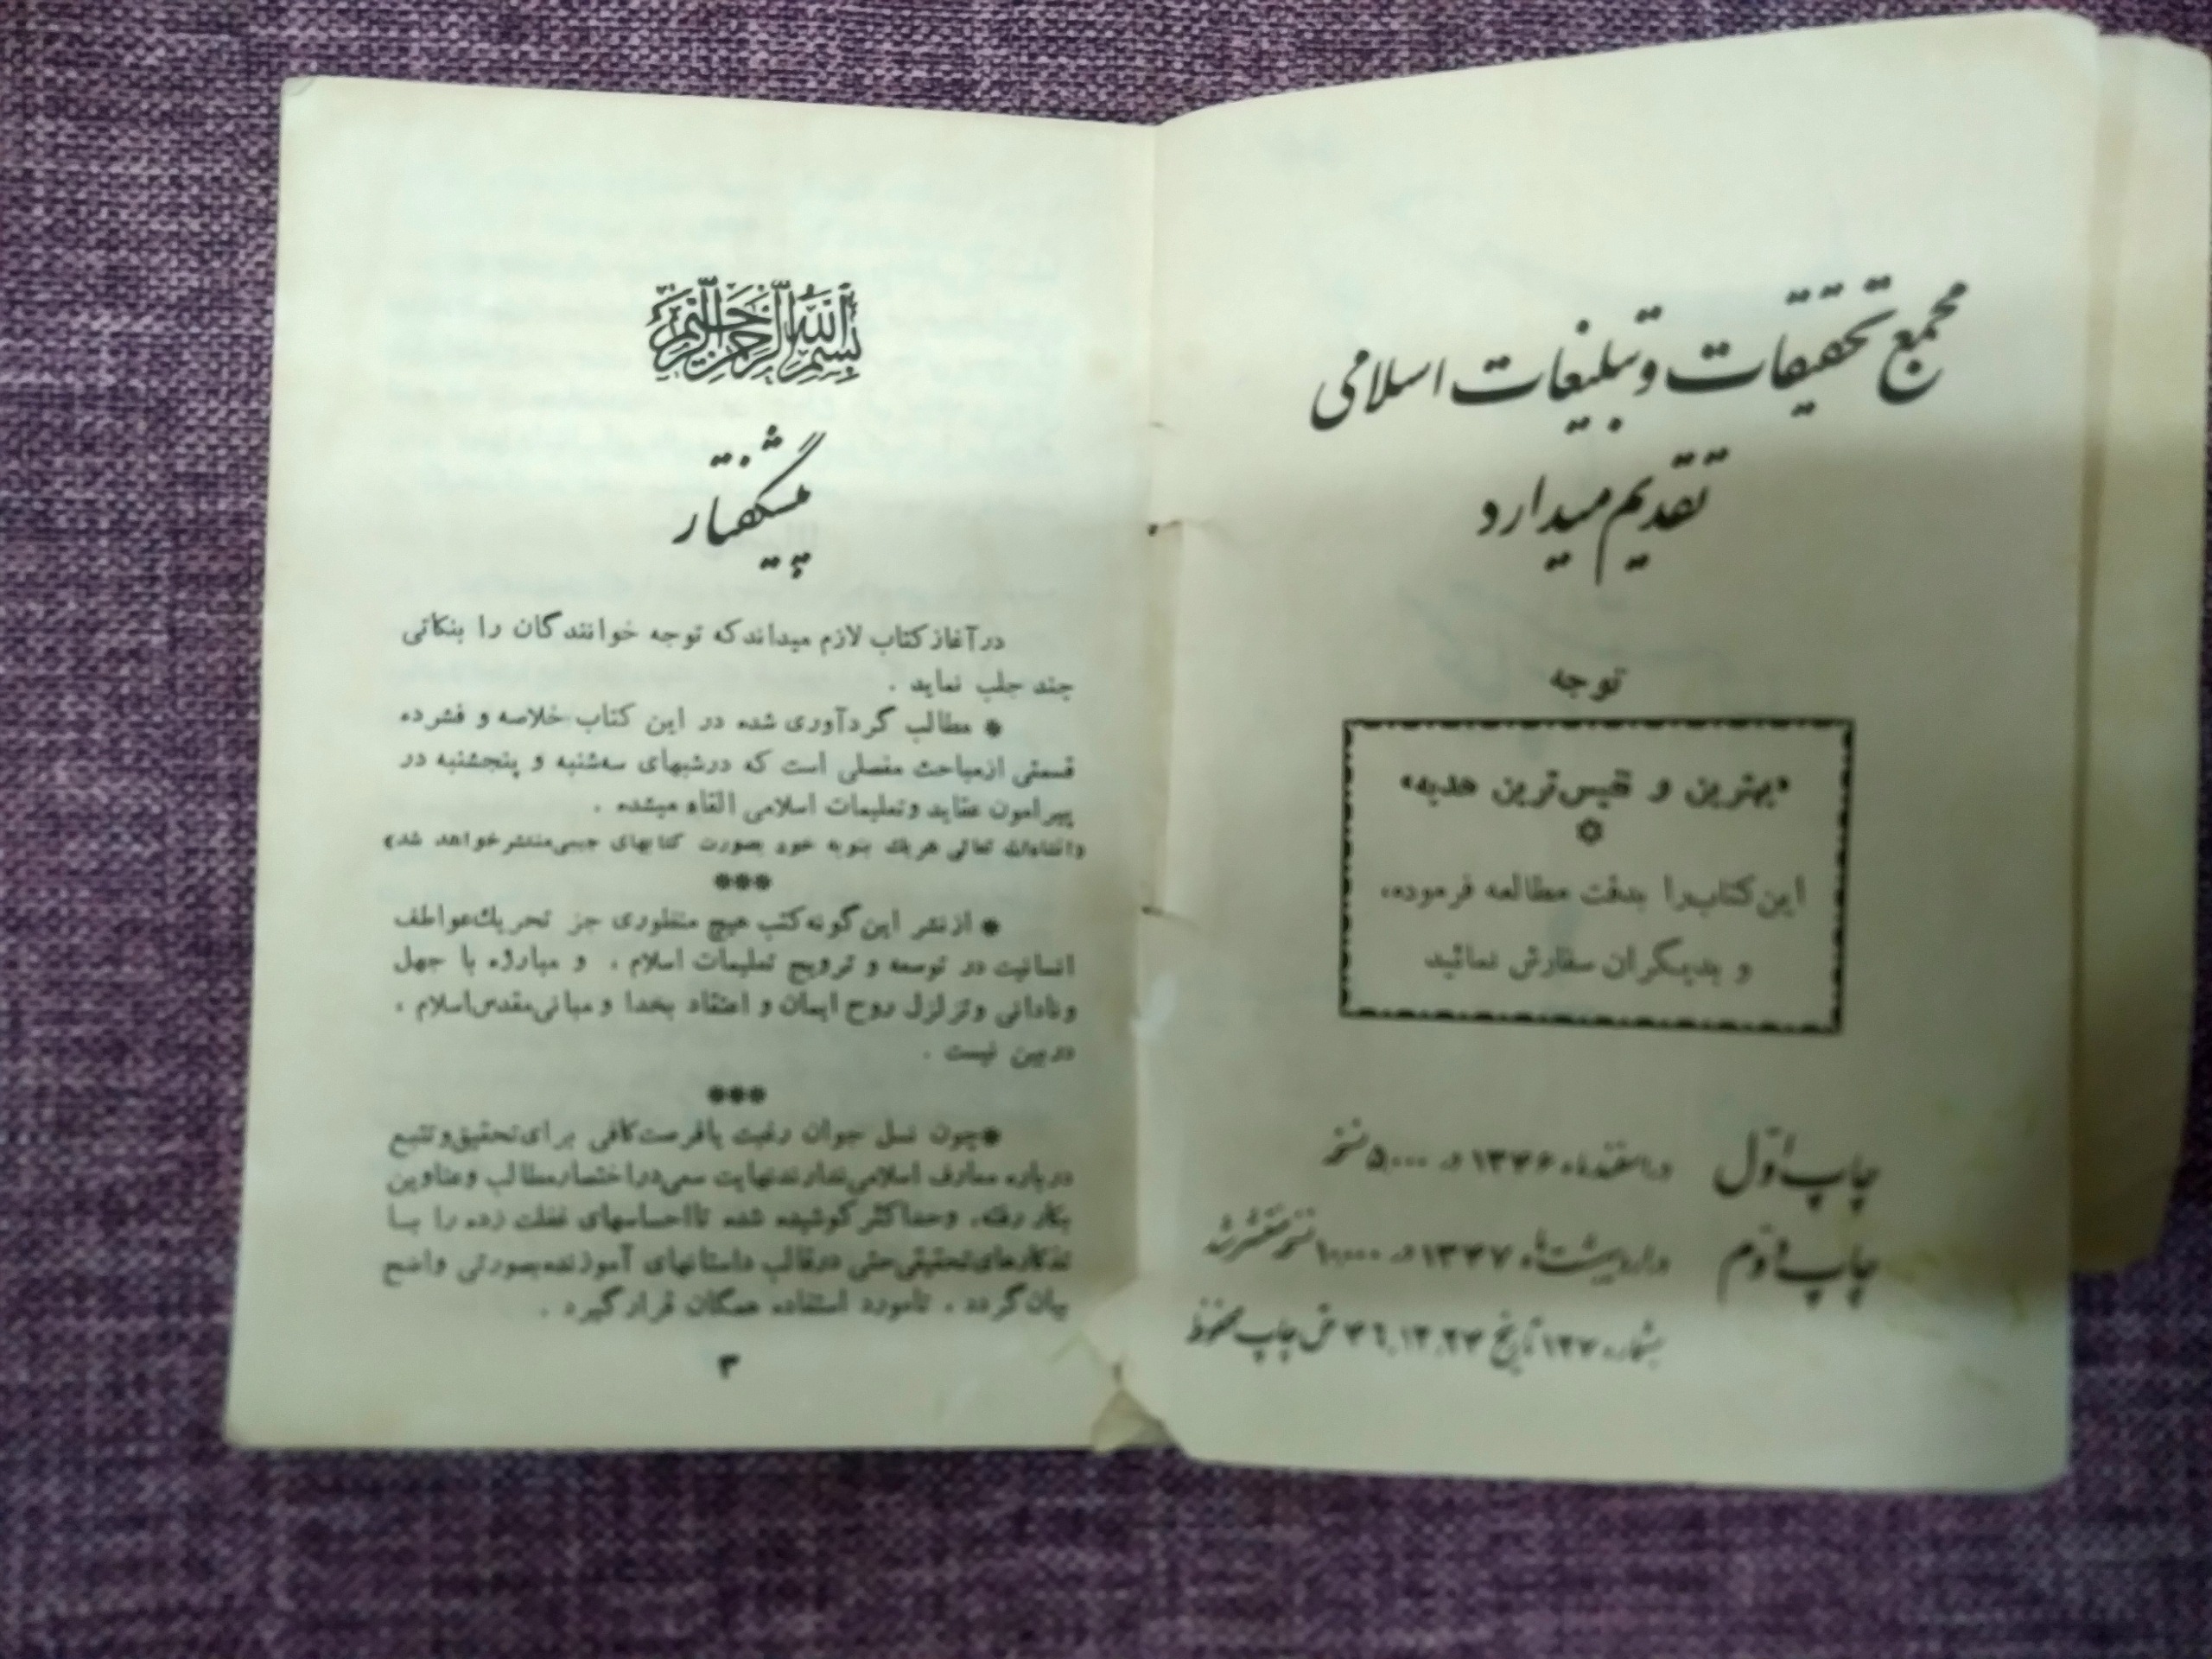 مجمع تحقیقات و تبلیغات اسلامی
تقدیم میدارد
توجه
«بهترین و نفیس‌ترین هدیه»
این کتاب را بدقت مطالعه فرموده،
و بدیگران سفارش نمائید
چاپ اوّل در اسفندماه ۱۳۴۶ در ۵۰۰۰ نسخه
چاپ دوّم در اردیبهشت ماه ۱۳۴۷ در ۱۰۰۰۰ نسخه منتشر شد
بشماره ۱۲۷ تاریخ ۴۶٫۱۲٫۲۴ حق چاپ محفوظ
بسم الله الرحمن الرحیم
پیشگفتار
در آغاز کتاب لازم میداند که توجه خوانندگان را بنکاتی
چند جلب نماید .
* مطالب گردآوری شده در این کتاب خلاصه و فشرده
قسمتی از مباحث مفصلی است که در شبهای سه‌شنبه و پنجشنبه در
پیرامون عقاید و تعلیمات اسلامی القاء میشده .
«انشاءالله تعالی هر یك بنوبه خود بصورت کتابهای جیبی منتشر خواهد شد»
***
* از نشر این گونه کتب هیچ منظوری جز تحریك عواطف
انسانیت در توسعه و ترویج تعلیمات اسلام ، و مبارزه با جهل
و نادانی و تزلزل روح ایمان و اعتقاد بخدا و مبانی مقدس اسلام ،
در بین نیست .
***
* چون نسل جوان رغبت یا فرصت کافی برای تحقیق و تتبع
درباره معارف اسلامی ندارند نهایت سعی در اختصار مطالب و عناوین
بکار رفته، و حداکثر کوشیده شده تا احساسهای غفلت زده را بـا
تذکارهای تحقیقی حتی در قالب داستانهای آموزنده بصورتی واضح
بیان گردد ، تا مورد استفاده همگان قرار گیرد .
۳